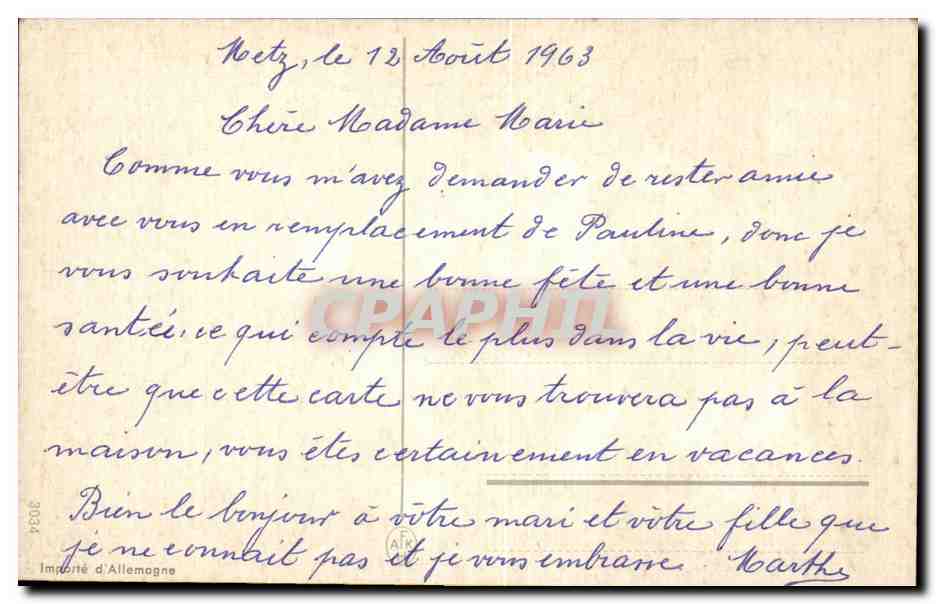 Metz, le 12 Août 1963
Chère Madame Marie
Comme vous m'avez demander de rester amie
avec vous en remplacement de Pauline, donc je
vous souhaite une bonne fête et une bonne
santée, ce qui compte le plus dans la vie, peut-
être que cette carte ne vous trouvera pas à la
maison, vous êtes certainement en vacances.
Bien le bonjour à vôtre mari et vôtre fille que
je ne connait pas et je vous embrasse. Marthe
Importé d'Allemagne
3034
AFK
CPAPHIL